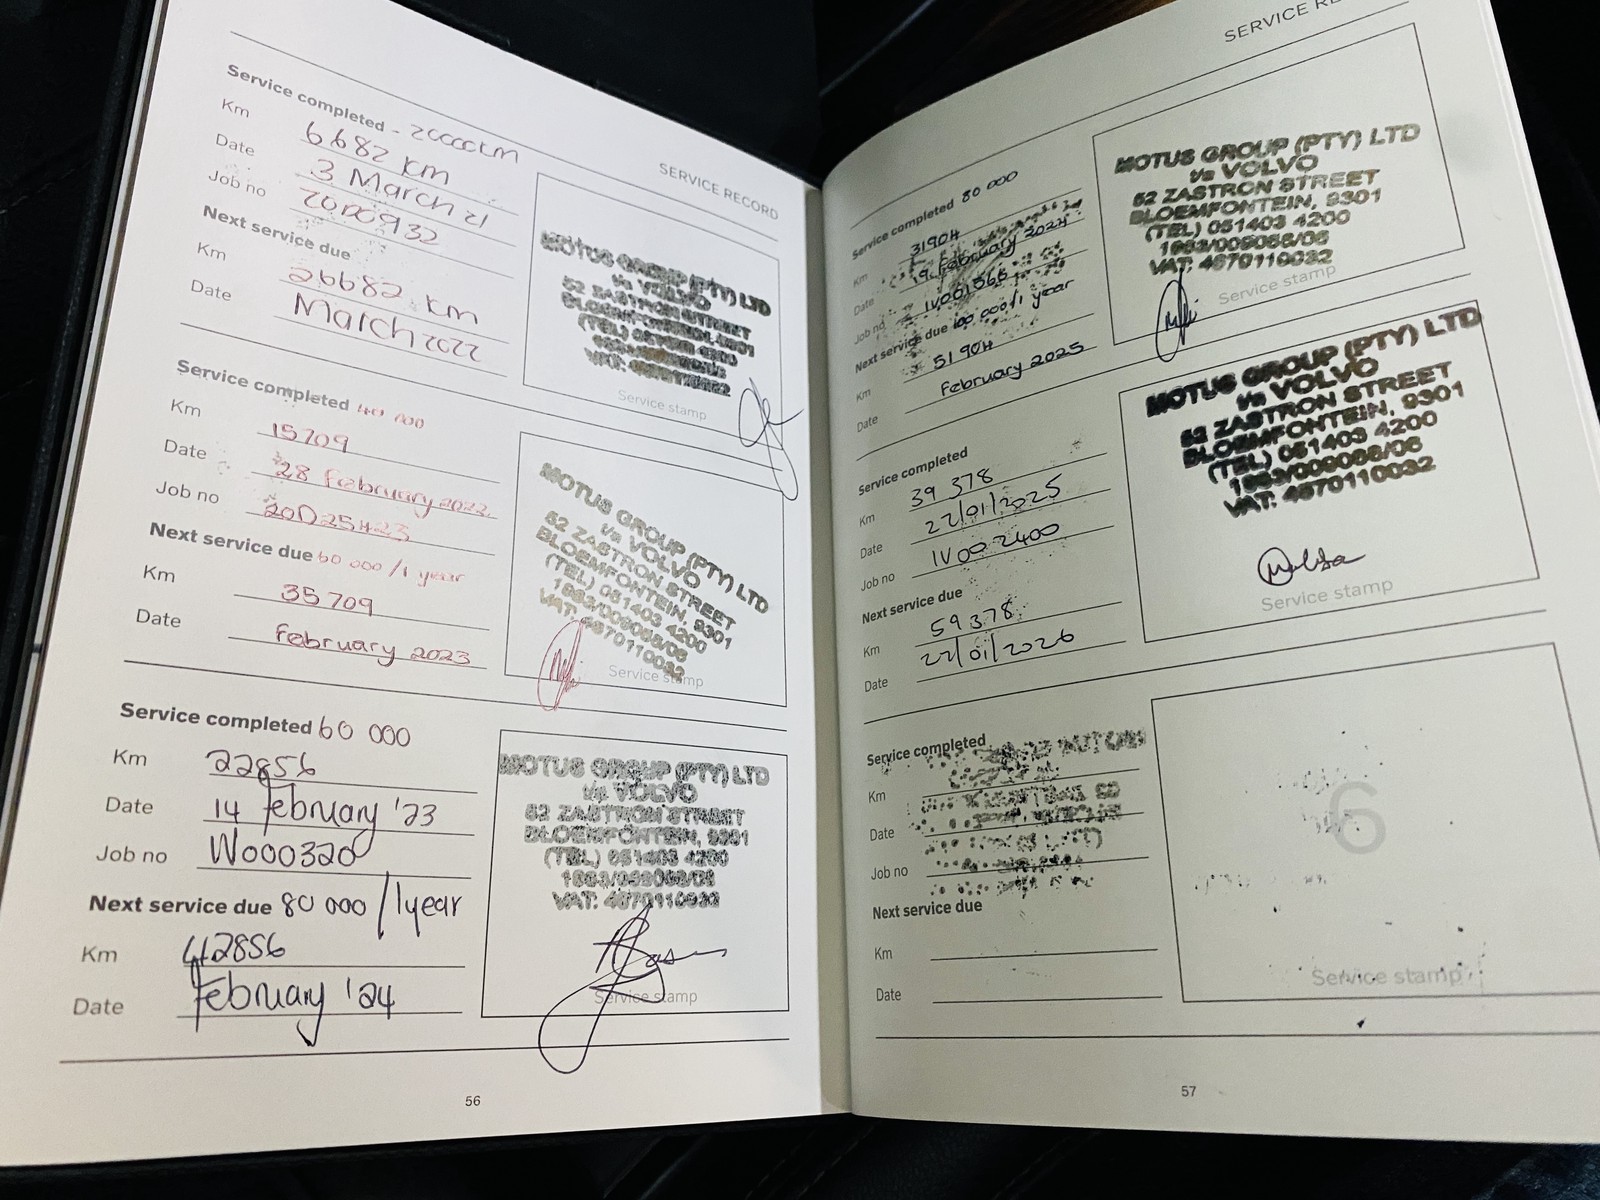 SERVICE RECORD
Service completed - 20000km
Km 6682 km
Date 3 March 21
Job no
Next service due
Km 26682 km
Date March 2022
MOTUS GROUP (PTY) LTD
t/a VOLVO
52 ZASTRON STREET
Service stamp
Service completed 40 000
Km 15709
Date 28 February 2022
Job no
Next service due 60 000 /1 year
Km 35709
Date February 2023
MOTUS GROUP (PTY) LTD
t/a VOLVO
52 ZASTRON STREET
BLOEMFONTEIN, 9301
(TEL) 051403 4200
1983/009088/06
VAT: 4670110032
Service stamp
Service completed 60 000
Km 22856
Date 14 February '23
Job no W000320
Next service due 80 000 /1year
Km 42856
Date February '24
MOTUS GROUP (PTY) LTD
t/a VOLVO
52 ZASTRON STREET
BLOEMFONTEIN, 9301
(TEL) 051403 4200
1983/009088/06
VAT: 4670110032
Service stamp
56
Service completed 80 000
Km 31904
Date 19 February 2024
Job no IV001566
Next service due 100 000/1 year
Km 51904
Date February 2025
MOTUS GROUP (PTY) LTD
t/a VOLVO
52 ZASTRON STREET
BLOEMFONTEIN, 9301
(TEL) 051403 4200
1983/009088/06
VAT: 4670110032
Service stamp
Service completed
Km 39 378
Date 22/01/2025
Job no IV002400
Next service due
Km 59378
Date 22/01/2026
MOTUS GROUP (PTY) LTD
t/a VOLVO
52 ZASTRON STREET
BLOEMFONTEIN, 9301
(TEL) 051403 4200
1983/009088/06
VAT: 4670110032
Service stamp
Service completed
Km
Date
Job no
Next service due
Km
Date
6
Service stamp
57